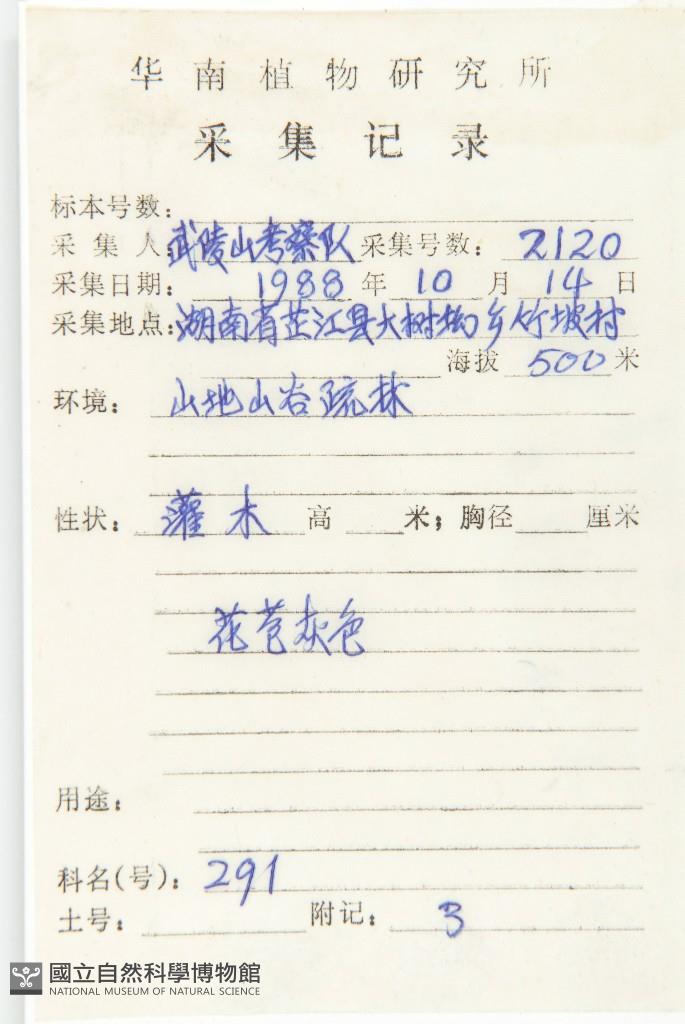 华南植物研究所
采集记录
标本号数：
采集人：武陵山考察队 采集号数：2120
采集日期：1988年10月14日
采集地点：湖南省芷江县大树坳乡竹坡村
海拔 500 米
环境：山地山谷疏林
性状：灌木 高 米；胸径 厘米
花苞灰色
用途：
科名(号)：291
土号： 附记：3
國立自然科學博物館
NATIONAL MUSEUM OF NATURAL SCIENCE